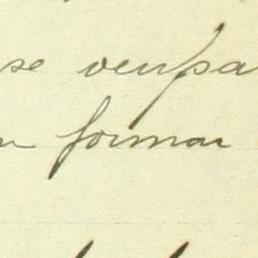 se ocupa
formar